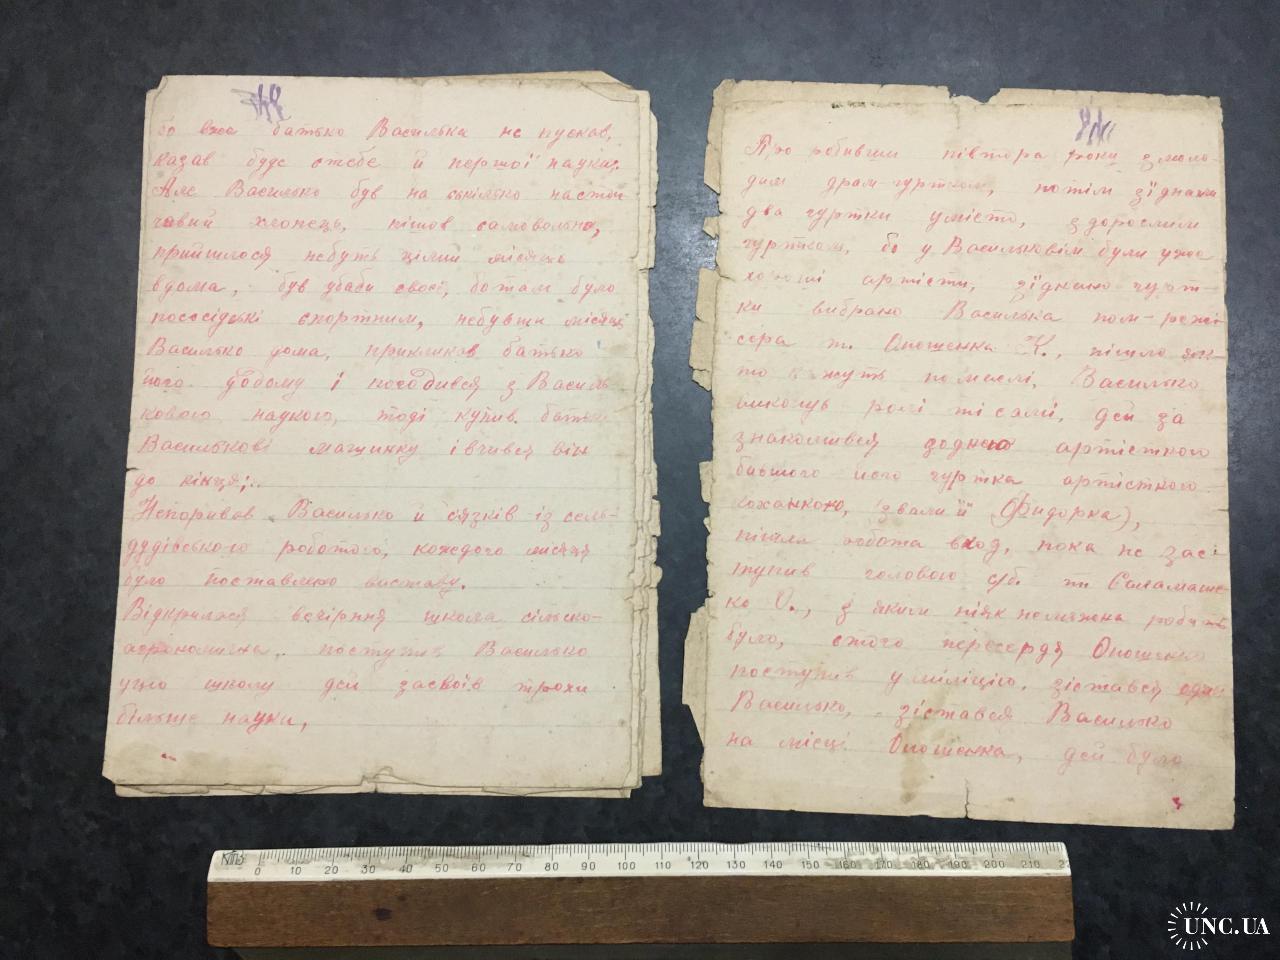 бо вже батько Василька не пускав,
казав буде стебе й першої науки,
Але Василько був на скілько настой
чивий хлопець, пішов самовольно,
прийшлося небуть цілий місяць
вдома, був убаби своєї, ботам було
посусідські спортним, небувши місяць
Василько дома, прикликав батько
його додому і погодився з Василь
ковою наукою, тоді купив батько
Василькові машинку і вчився він
до кінця;..
Непоривав Василько й свʼязків із сель-
будівською роботою, кождого місяця
було поставлено виставу.
Відкрилася вечірння школа сільско-
агрономична, поступив Василько
уцю школу дей засвоїв трохи
більше науки,
Про робивши півтора роки з моло-
дим драм-гуртком, потім зʼїднали
два гуртки умісто, здорослим
гуртком, бо у Васильковім були уже
хороші артісти, зʼїднано гурт-
ки вибрано Василька пом-режі-
сера т. Опошенка К., пішло
то кжуть по маслі, Василько
ролі ті самі, дей за
знакомився зодною артісткою
бившого його гуртка артісткою
коханкою, звали її (Фидорка),
пішла робота вход, пока не зас-
тупив головою с/б. т. Саламаше-
ко О., з яким ніяк неможна робить
було, стого пересердя Опошенко
поступив уміліцію, зістався один
Василько, зістався Василько
на місці Опошенка, дей було
КПЗ
0 10 20 30 40 50 60 70 80 90 100 110 120 130 140 150 160 170 180 190 200 210
UNC.UA